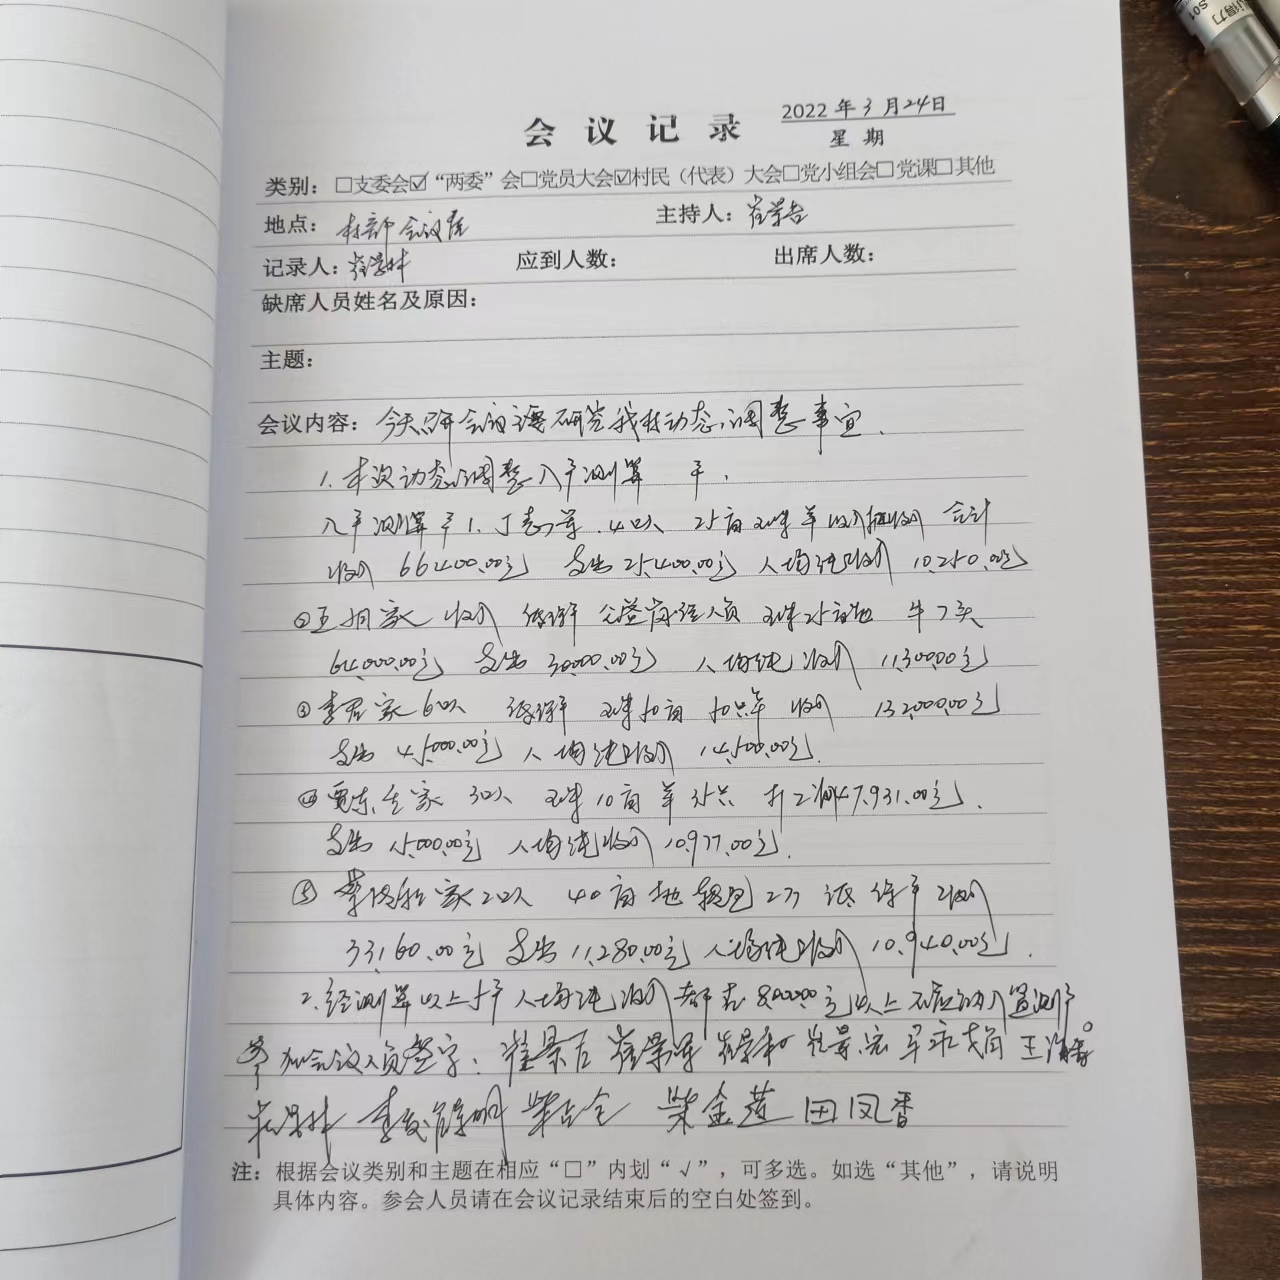 得力
S01
会议记录
2022年3月24日
星期
类别：□支委会☑“两委”会□党员大会☑村民（代表）大会□党小组会□党课□其他
地点：村部会议室
主持人：崔景吉
记录人：崔景林
应到人数：
出席人数：
缺席人员姓名及原因：
主题：
会议内容：今天召开会议主要研究我村动态调整事宜.
1.本次动态调整入户测算 户.
入户测算户1.丁志军.4口人 25亩玉米羊收入 合计
收入66400.00元 支出25,400.00元 人均纯收入10,250.00元
②王 家 收入 低保 公益岗 人员 玉米25亩地 牛7头
64,000.00元 支出30,000.00元 人均纯收入 11,300.00元
③李 家6口人 低保 玉米50亩 50只羊 收入 132,000.00元
支出45,000.00元 人均纯收入 14,500.00元.
④贾 家 3口人 玉米10亩 羊35只 打工收入47,931.00元.
支出15,000.00元 人均纯收入10,977.00元.
⑤ 家2口人 40亩地 2万 低保 收入
33,160.00元 支出11,280.00元 人均纯收入10,940.00元.
2.经测算以上5户人均纯收入都在8,000.00元以上不应纳入监测户。
参加会议人员签字：崔景吉 崔景军 崔景和 崔景宏 王
崔景林 李 柴占全 柴金莲 田凤香
注：根据会议类别和主题在相应“□”内划“√”，可多选。如选“其他”，请说明
具体内容。参会人员请在会议记录结束后的空白处签到。